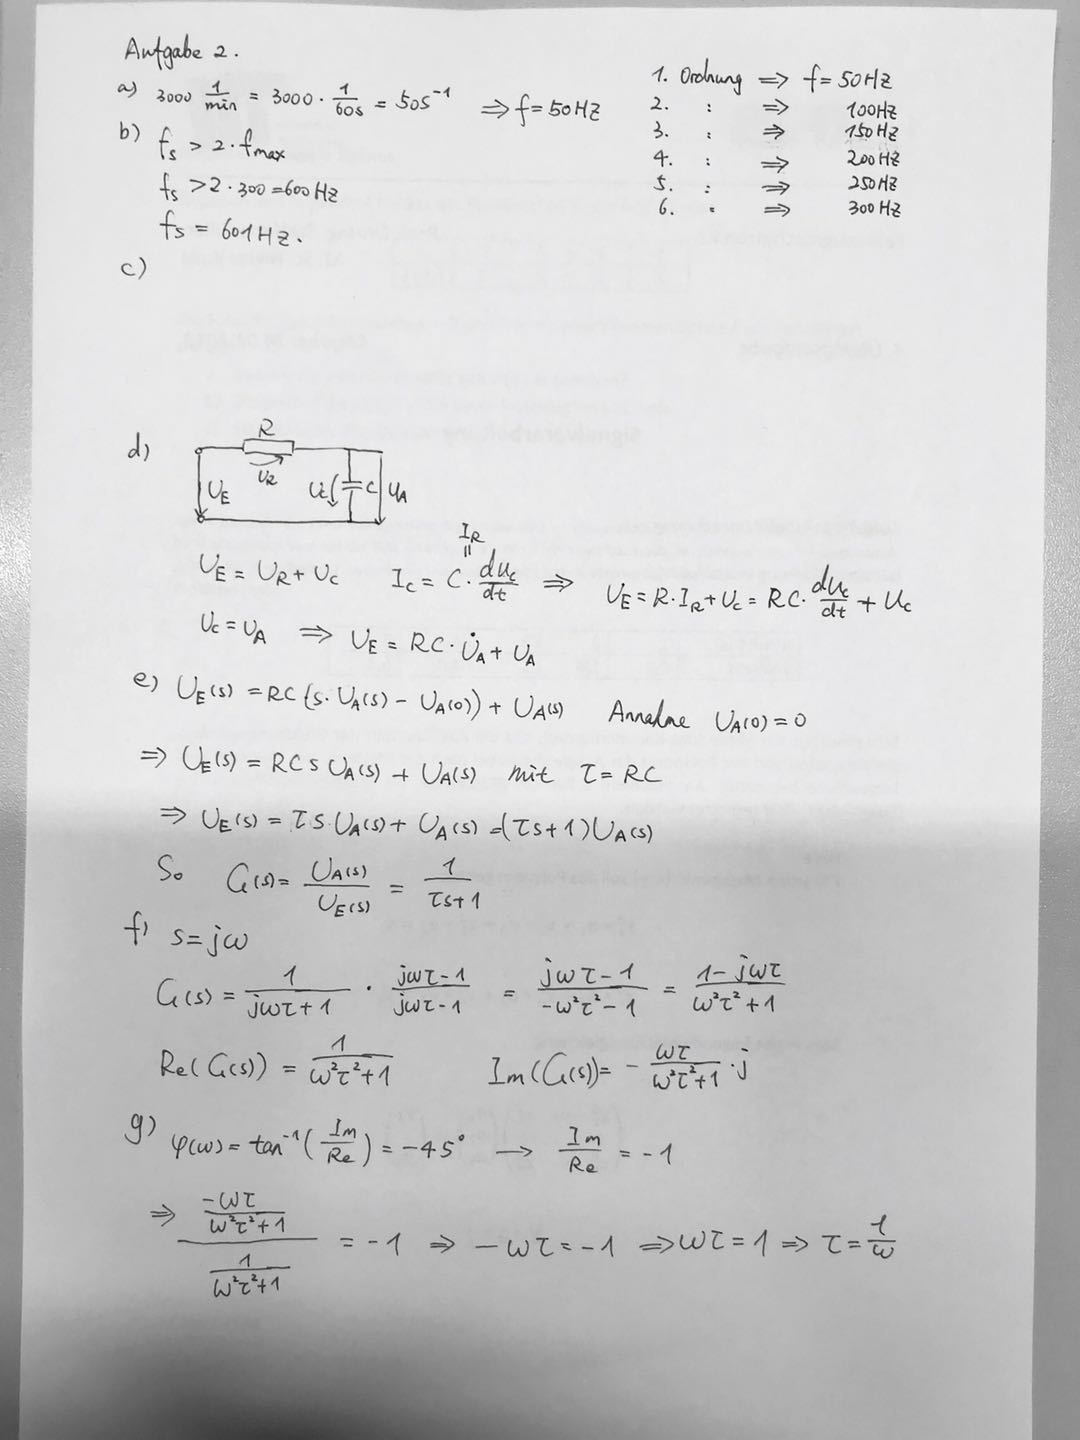 Aufgabe 2.
a) 3000 1/min = 3000 · 1/60s = 50s⁻¹ ⇒ f = 50 Hz
1. Ordnung ⇒ f = 50 Hz
2. : ⇒ 100 Hz
3. : ⇒ 150 Hz
4. : ⇒ 200 Hz
5. : ⇒ 250 Hz
6. : ⇒ 300 Hz
b) fs > 2 · fmax
fs > 2 · 300 = 600 Hz
fs = 601 Hz.
c)
d)
R
UE UR Uc C UA
IR
=
UE = UR + Uc Ic = C · duc/dt ⇒ UE = R · IR + Uc = RC · duc/dt + Uc
Uc = UA ⇒ UE = RC · U̇A + UA
e) UE(s) = RC (s · UA(s) − UA(0)) + UA(s) Annahme UA(0) = 0
⇒ UE(s) = RCs UA(s) + UA(s) mit τ = RC
⇒ UE(s) = τs UA(s) + UA(s) = (τs+1) UA(s)
So G(s) = UA(s)/UE(s) = 1/(τs+1)
f) s = jω
G(s) = 1/(jωτ+1) · (jωτ−1)/(jωτ−1) = (jωτ−1)/(−ω²τ²−1) = (1−jωτ)/(ω²τ²+1)
Re(G(s)) = 1/(ω²τ²+1) Im(G(s)) = − ωτ/(ω²τ²+1) · j
g) φ(ω) = tan⁻¹(Im/Re) = −45° → Im/Re = −1
⇒ (−ωτ/(ω²τ²+1))/(1/(ω²τ²+1)) = −1 ⇒ −ωτ = −1 ⇒ ωτ = 1 ⇒ τ = 1/ω